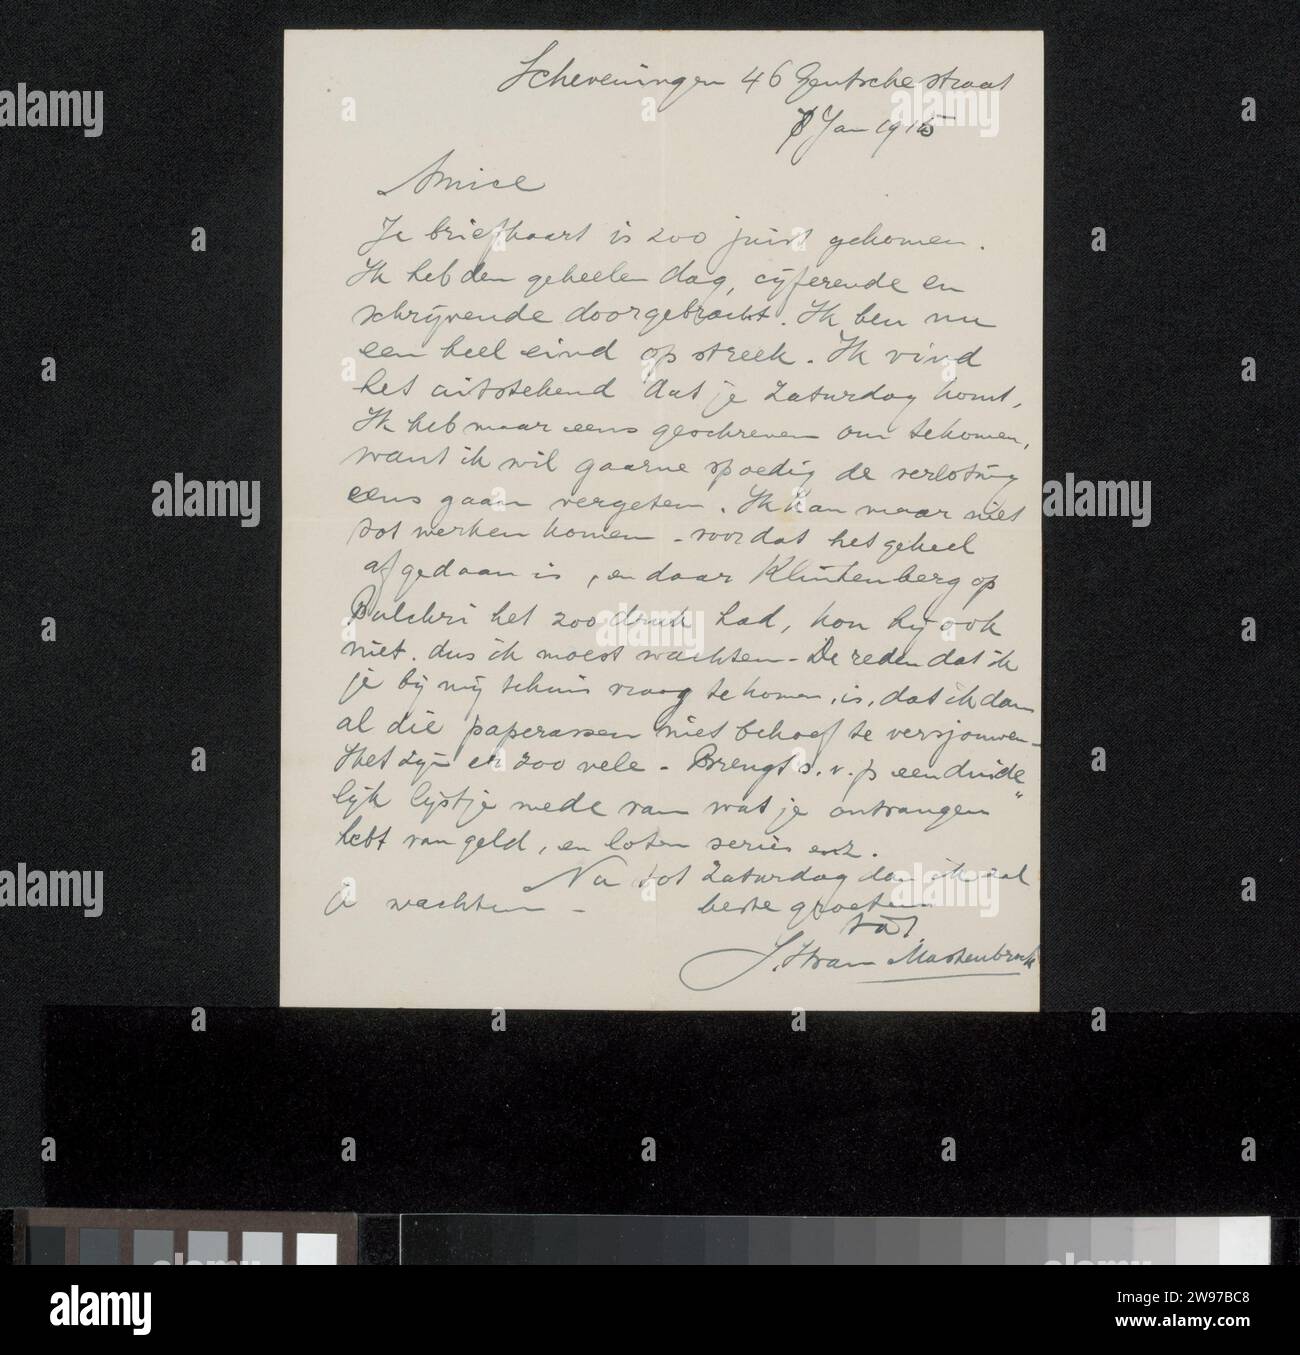 Scheveningen 46 Gentschestraat
Jan 1915
Amice
Je briefkaart is zoo juist gekomen.
Ik heb den geheelen dag, cijferende en
schrijvende doorgebracht. Ik ben nu
een heel eind op streek. Ik vind
het uitstekend dat je Zaturdag komt,
Ik heb maar eens geschreven om te komen,
want ik wil gaarne spoedig de verloting
eens gaan vergeten. Ik kan maar niet
tot werken komen - voordat het geheel
afgedaan is, en daar Klinkenberg op
Pulchri het zoo druk had, kon hij ook
niet. dus ik moest wachten - De reden dat ik
je bij mij thuis vraag te komen, is, dat ik dan
al die paperassen niet behoef te versjouwen -
Het zijn er zoo vele - Brengt s.v.p een duide
lijk lijstje mede van wat je ontvangen
hebt van geld, en loten series enz.
Nu tot Zaturdag dan ik zal
U wachten - beste groeten
tàt
J. H van Mastenbroek
alamy
a
alamy
Image ID: 2W97BC8
www.alamy.com